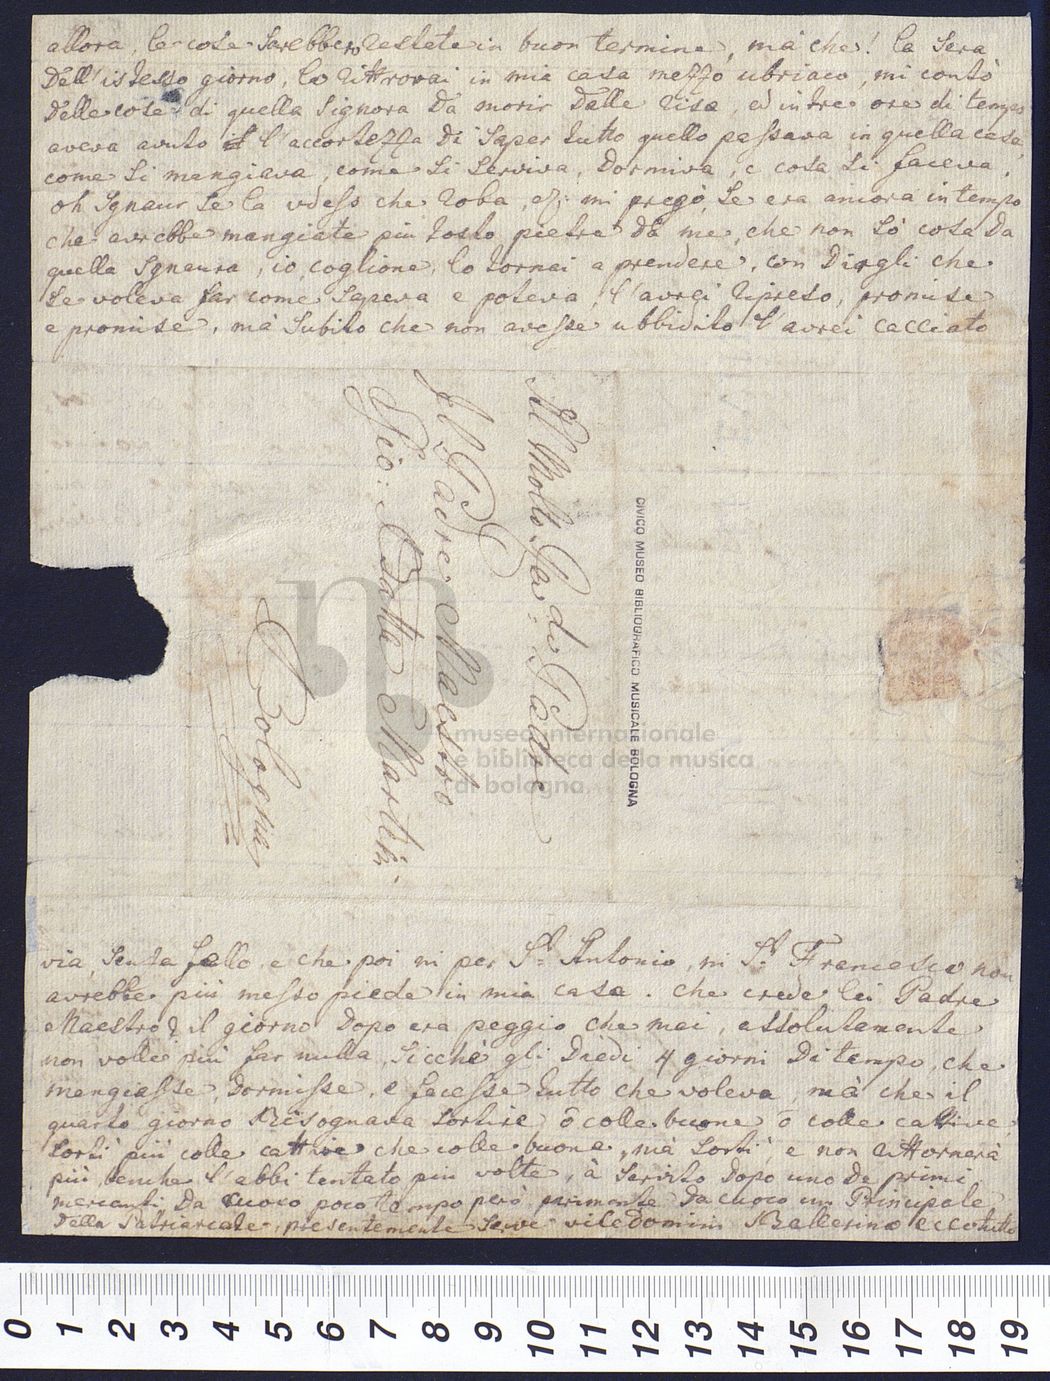 allora, le cose sarebbero restate in buon termine, mà che! la sera
dell'istesso giorno, lo rittrovai in mia casa mezzo ubriaco mi contò
delle cose di quella Signora da morir dalle risa, ed in tre ore di tempo
aveva avuto l'accortezza di saper tutto quello passava in quella casa,
come si mangiava, come si serviva, dormiva, e cosa si faceva,
oh Sgnaur se la vdess che roba, &: mi pregò, se era ancora in tempo
che avrebbe mangiate più tosto pietre da me, che non sò cosa da
quella Sgnaura, io, coglione, lo tornai a prendere, con dirgli che
se voleva far come sapeva e poteva, l'avrei ripreso, promise
e promise, mà subito che non avesse ubbidito l'avrei cacciato
Al Molto Rdo: Padre
Il Padre Maestro
Gio: Batta Martini
Bologna
CIVICO MUSEO BIBLIOGRAFICO MUSICALE BOLOGNA
museo internazionale
e biblioteca della musica
di bologna
via, senza fallo, e che poi ni per St. Antonio, ni St. Francesco non
avrebbe più messo piede in mia casa. che crede lei Padre
Maestro? il giorno dopo era peggio che mai, assolutamente
non volle più far nulla, sicchè gli diedi 4 giorni di tempo, che
mangiasse, dormisse, e facesse tutto che voleva, mà che il
quarto giorno bisognava sortire ò colle buone ò colle cattive,
sortì più colle cattive che colle buone, mà sortì, e non rittornerà
più, benche l'abbi tentato più volte, à servito dopo uno de primi
mercanti da cuoco poco tempo però, parimente da cuoco un Principale
della Patriarcale, presentemente serve vile domini Ballerino ecco tutto
0 1 2 3 4 5 6 7 8 9 10 11 12 13 14 15 16 17 18 19